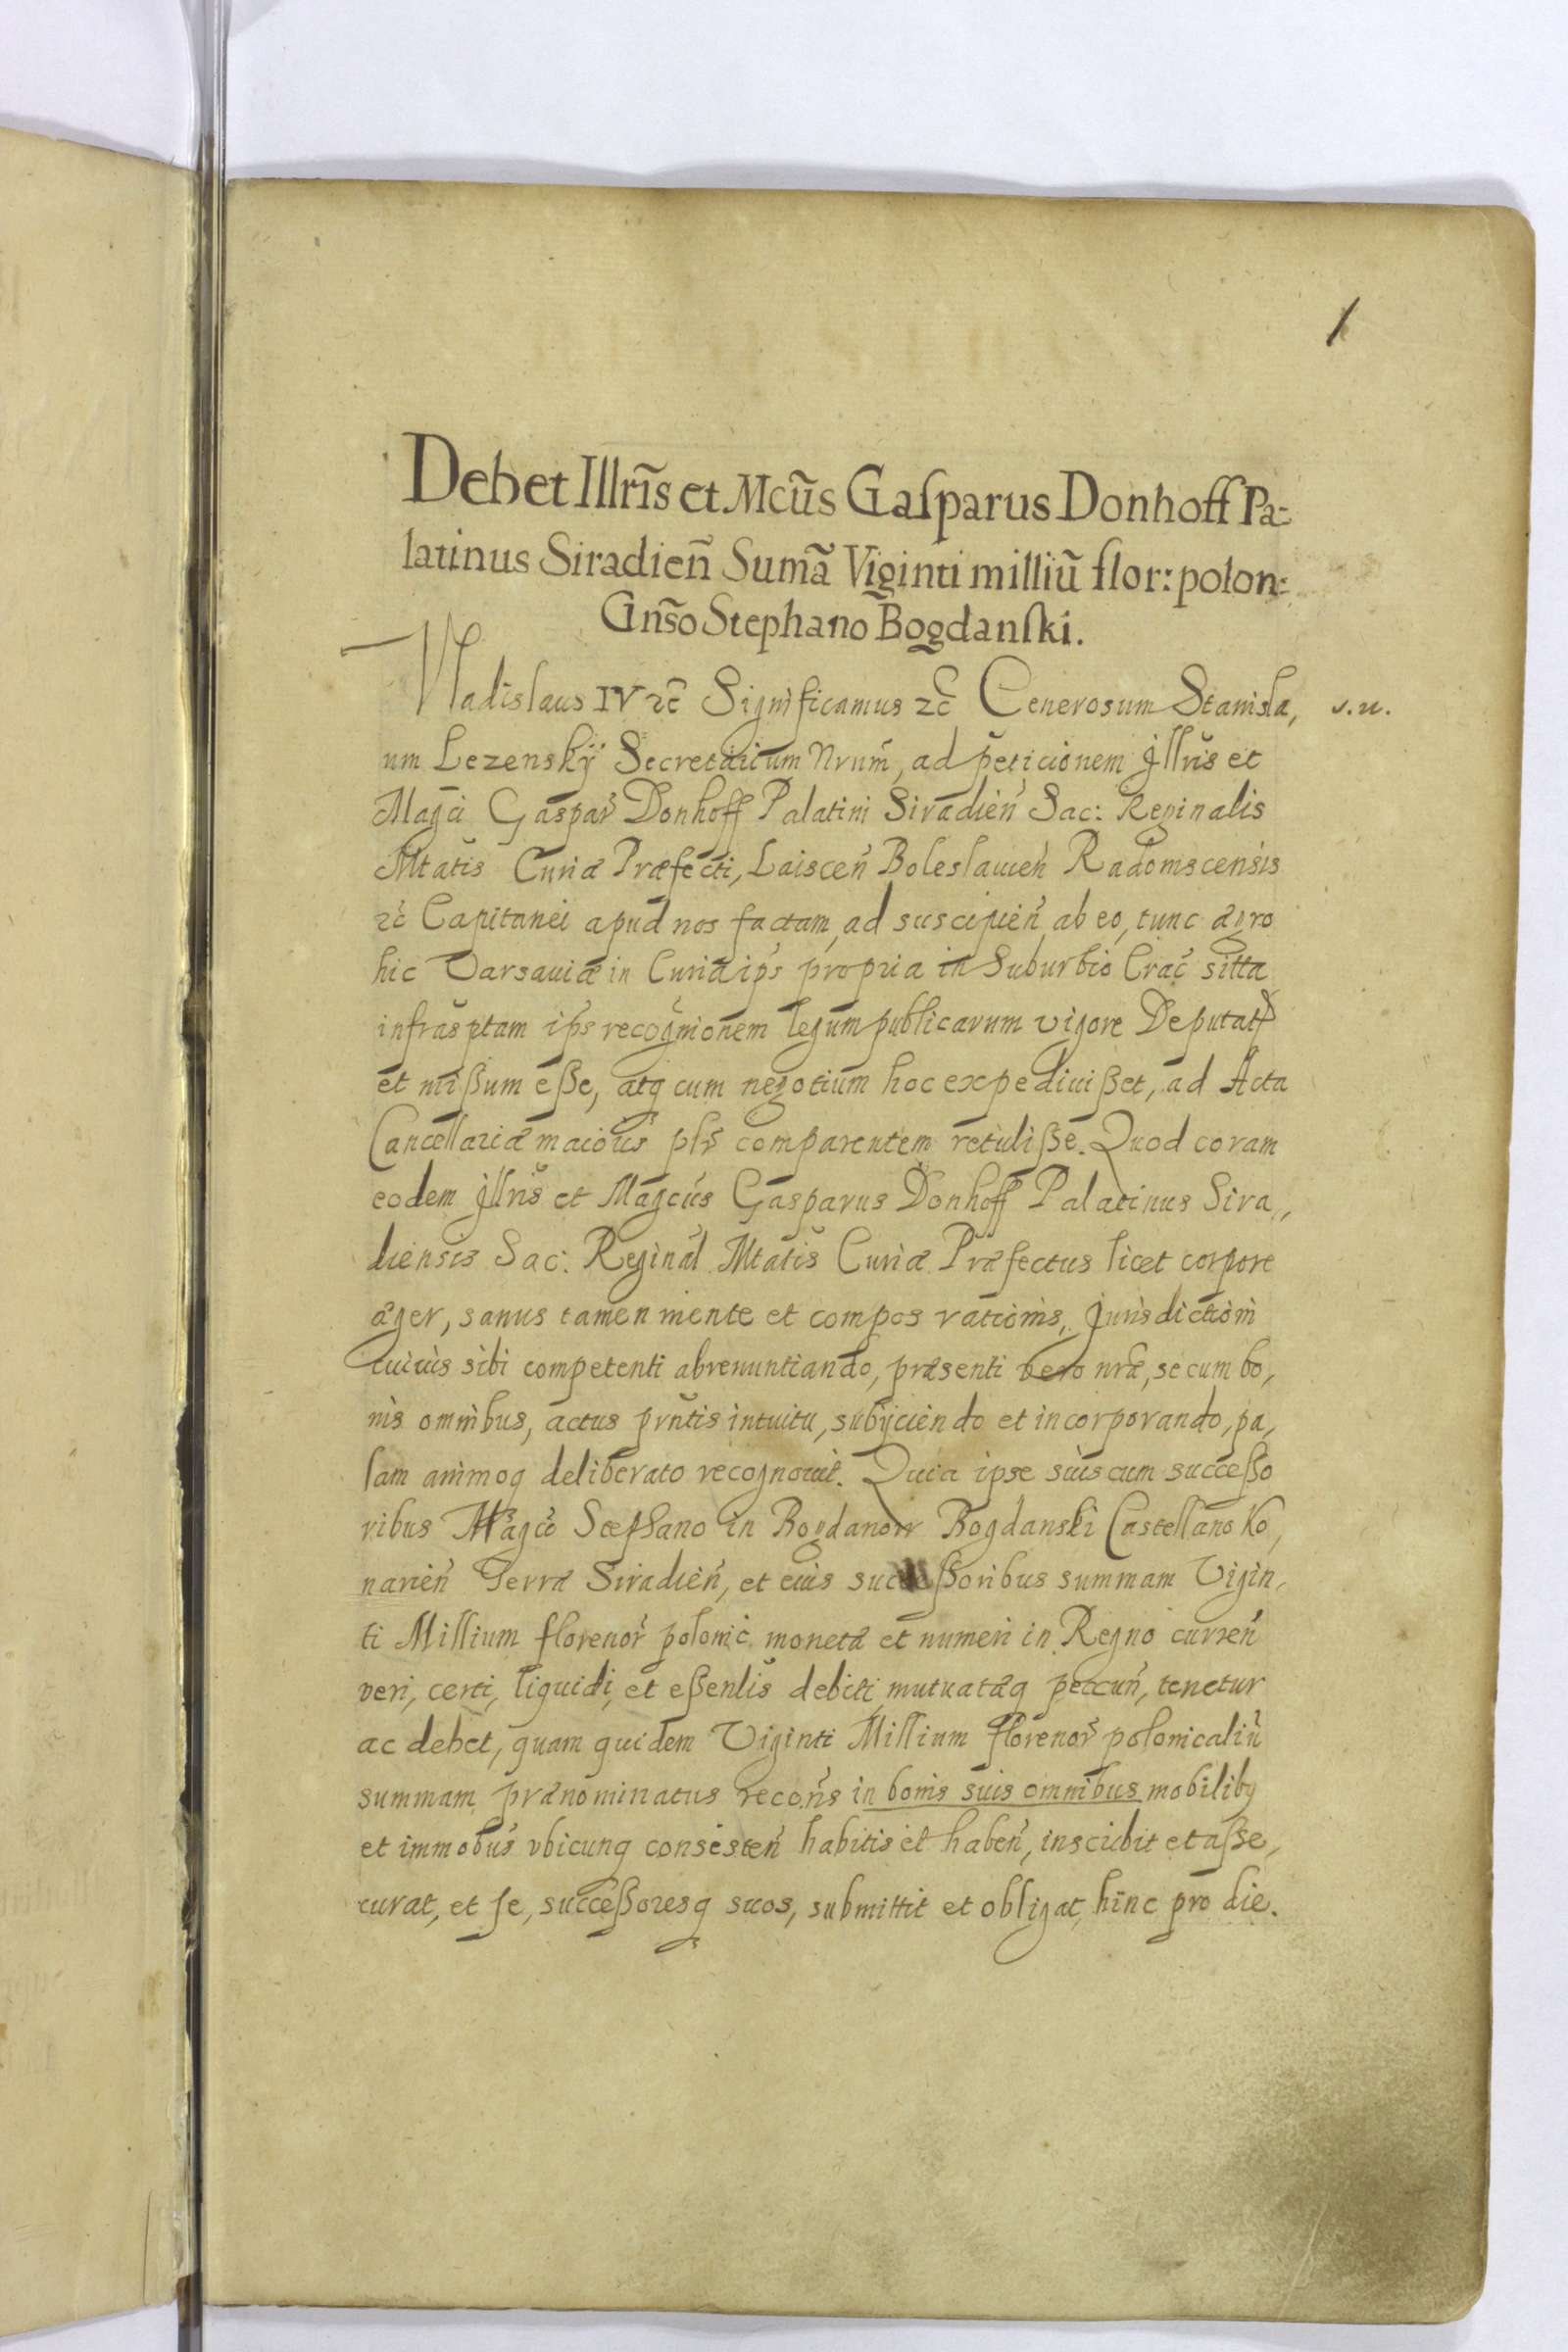 1
Debet Illrĩs et Mcũs Gaſparus Donhoff Pa-
latinus Siradieñ Sumã Viginti milliũ flor: polon:
Gnŝo Stephano Bogdanſki.
Vladislaus IV ꝛc̃ Significamus ꝛc̃ Generosum Stanisla, v. u.
um Lezenskÿ Secretarium Nrum̃, ad peticionem Jllris et
Magci Gaspar̃ Donhoff Palatini Siradien̄ Sac: Reginalis
Mtatis Curiæ Præfecti, Laiscen̄ Boleslauien̄ Radomscensis
ꝛc̃ Capitanei apud nos factam, ad suscipien̄ ab eo, tunc ægro
hic Varsauiæ in Curia ips̃ propria in Suburbio Crac̃ sitta
infrasp̃tam ips̃ recog̃nionem legum publicarum vigore Deputat̃
et mißum eße, atq cum negotium hoc expedivißet, ad Acta
Cancellariæ maioris̃ pl̃r comparentem retuliße. Quod coram
eodem Jllris̃ et Magcus̃ Gasparus Donhoff Palatinus Sira,,
diensis Sac: Reginal̃ Mtatis̃ Curiæ Præfectus licet corpore
æger, sanus tamen mente et compos rationis, Jurisdictioni
cuiuis sibi competenti abrenuntiando, præsenti vero nr̃æ, se cum bo,
nis omnibus, actus prñtis intuitu, subÿciendo et incorporando, pa,
lam animoq deliberato recognouit. Quia ipse suis cum succeßo
ribus Magco Stephano in Bogdanow Bogdanski Castellano Ko,
narien̄ Terræ Siradien̄, et eius succeßoribus summam Vigin,
ti Millium florenor̃ polonic̃ monetæ et numeri in Regno curren̄
veri, certi, liquidi, et eßenlis̃ debiti mutuatæq pecun̄, tenetur
ac debet, quam quidem Viginti Millium florenor̃ polonicaliũ
summam prænominatus recoñs in bonis suis omnibus mobiliby
et immobus̃ vbicunq consisten̄ habitis et haben̄, inscribit et aße,
curat, et se, succeßoresq suos, submittit et obligat, hinc pro die.